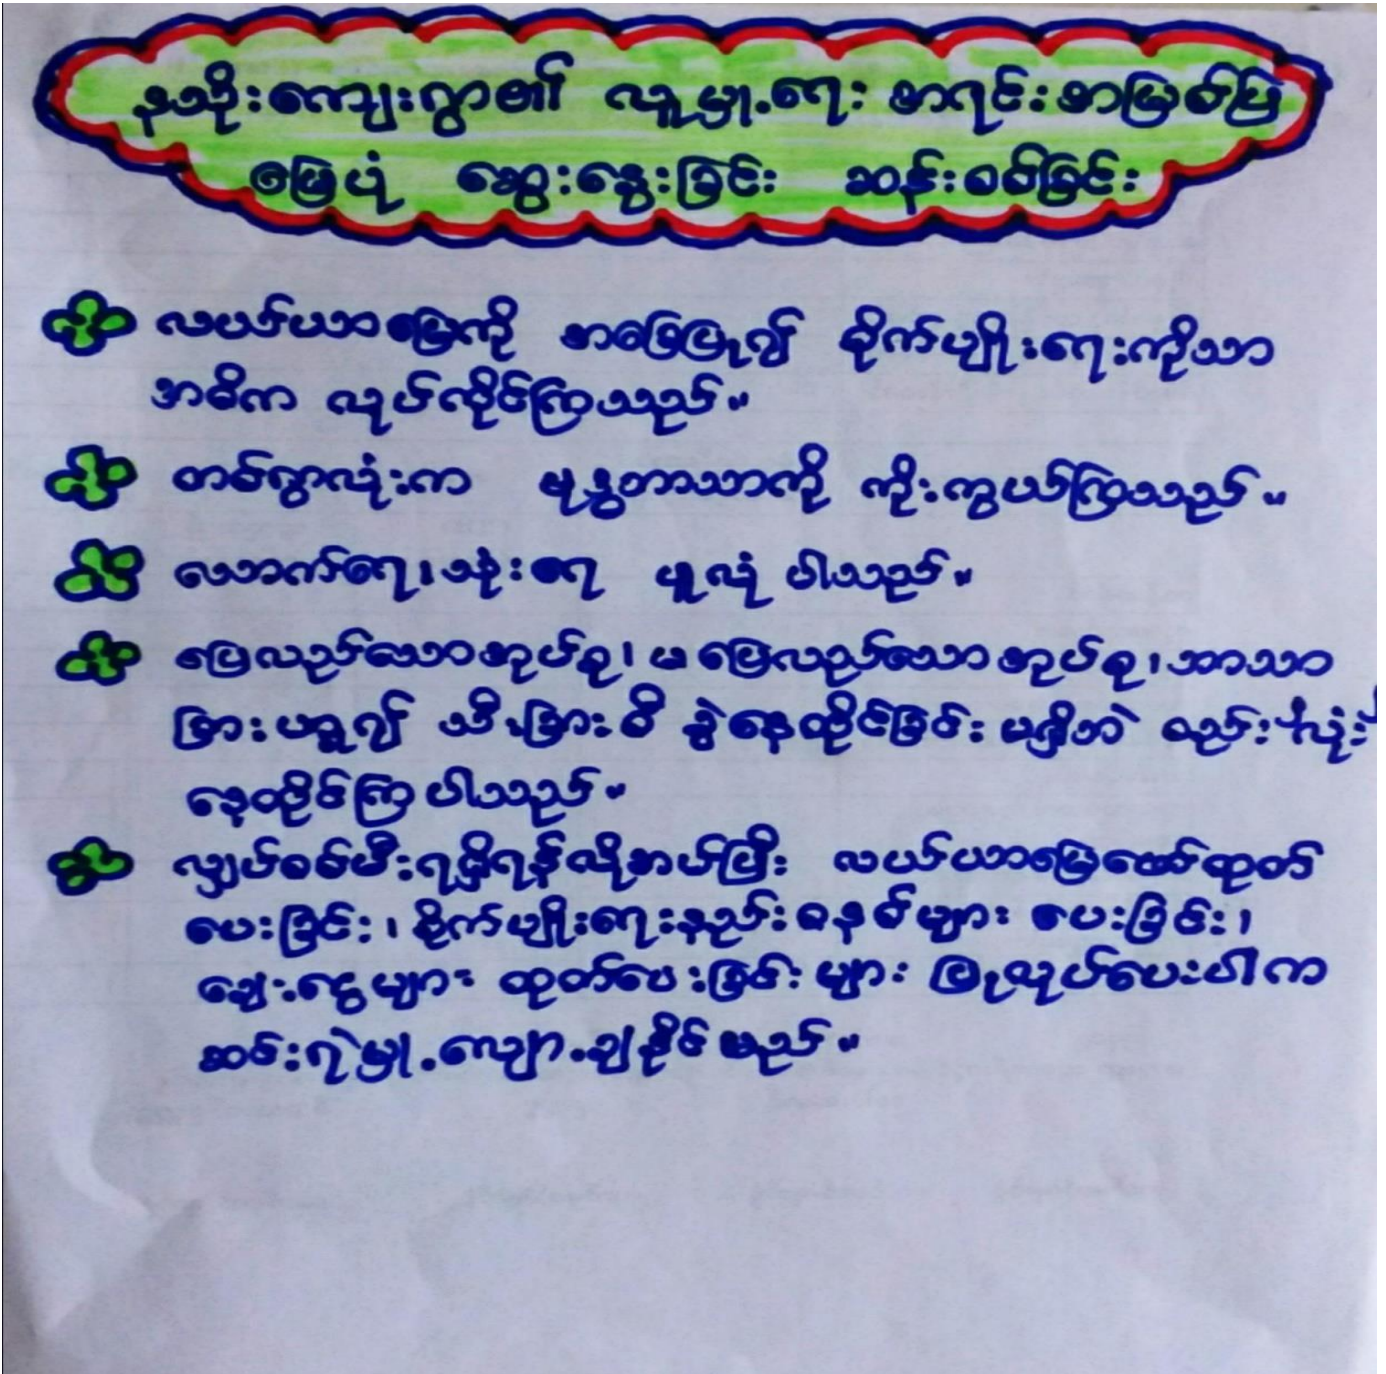 နသိုးကျေးရွာ၏ လူမှု.ရေး အရင်းအမြစ်ပြ
မြေပုံ ဆွေးနွေးခြင်း ဆန်းစစ်ခြင်း
လယ်ယာမြေကို အခြေပြု၍ စိုက်ပျိုးရေးကိုသာ
အဓိက လုပ်ကိုင်ကြသည်။
တစ်ရွာလုံးက ဗုဒ္ဓဘာသာကို ကိုးကွယ်ကြသည်။
သောက်ရေ၊ သုံးရေ ဖူလုံ ပါသည်။
ပြေလည်သောအုပ်စု၊ မပြေလည်သောအုပ်စု၊ ဘာသာ
ခြားဟူ၍ သီးခြားစီ ခွဲနေထိုင်ခြင်း မရှိဘဲ စည်းလုံး
နေထိုင်ကြ ပါသည်။
လျှပ်စစ်မီးရရှိရန်လိုအပ်ပြီး လယ်ယာမြေဖော်ထုတ်
ပေးခြင်း၊ စိုက်ပျိုးရေးနည်းစနစ်များ ပေးခြင်း၊
ချေးငွေများ ထုတ်ပေးခြင်းများ ပြုလုပ်ပေးပါက
ဆင်းရဲမှု.လျော.ချနိုင်မည်။